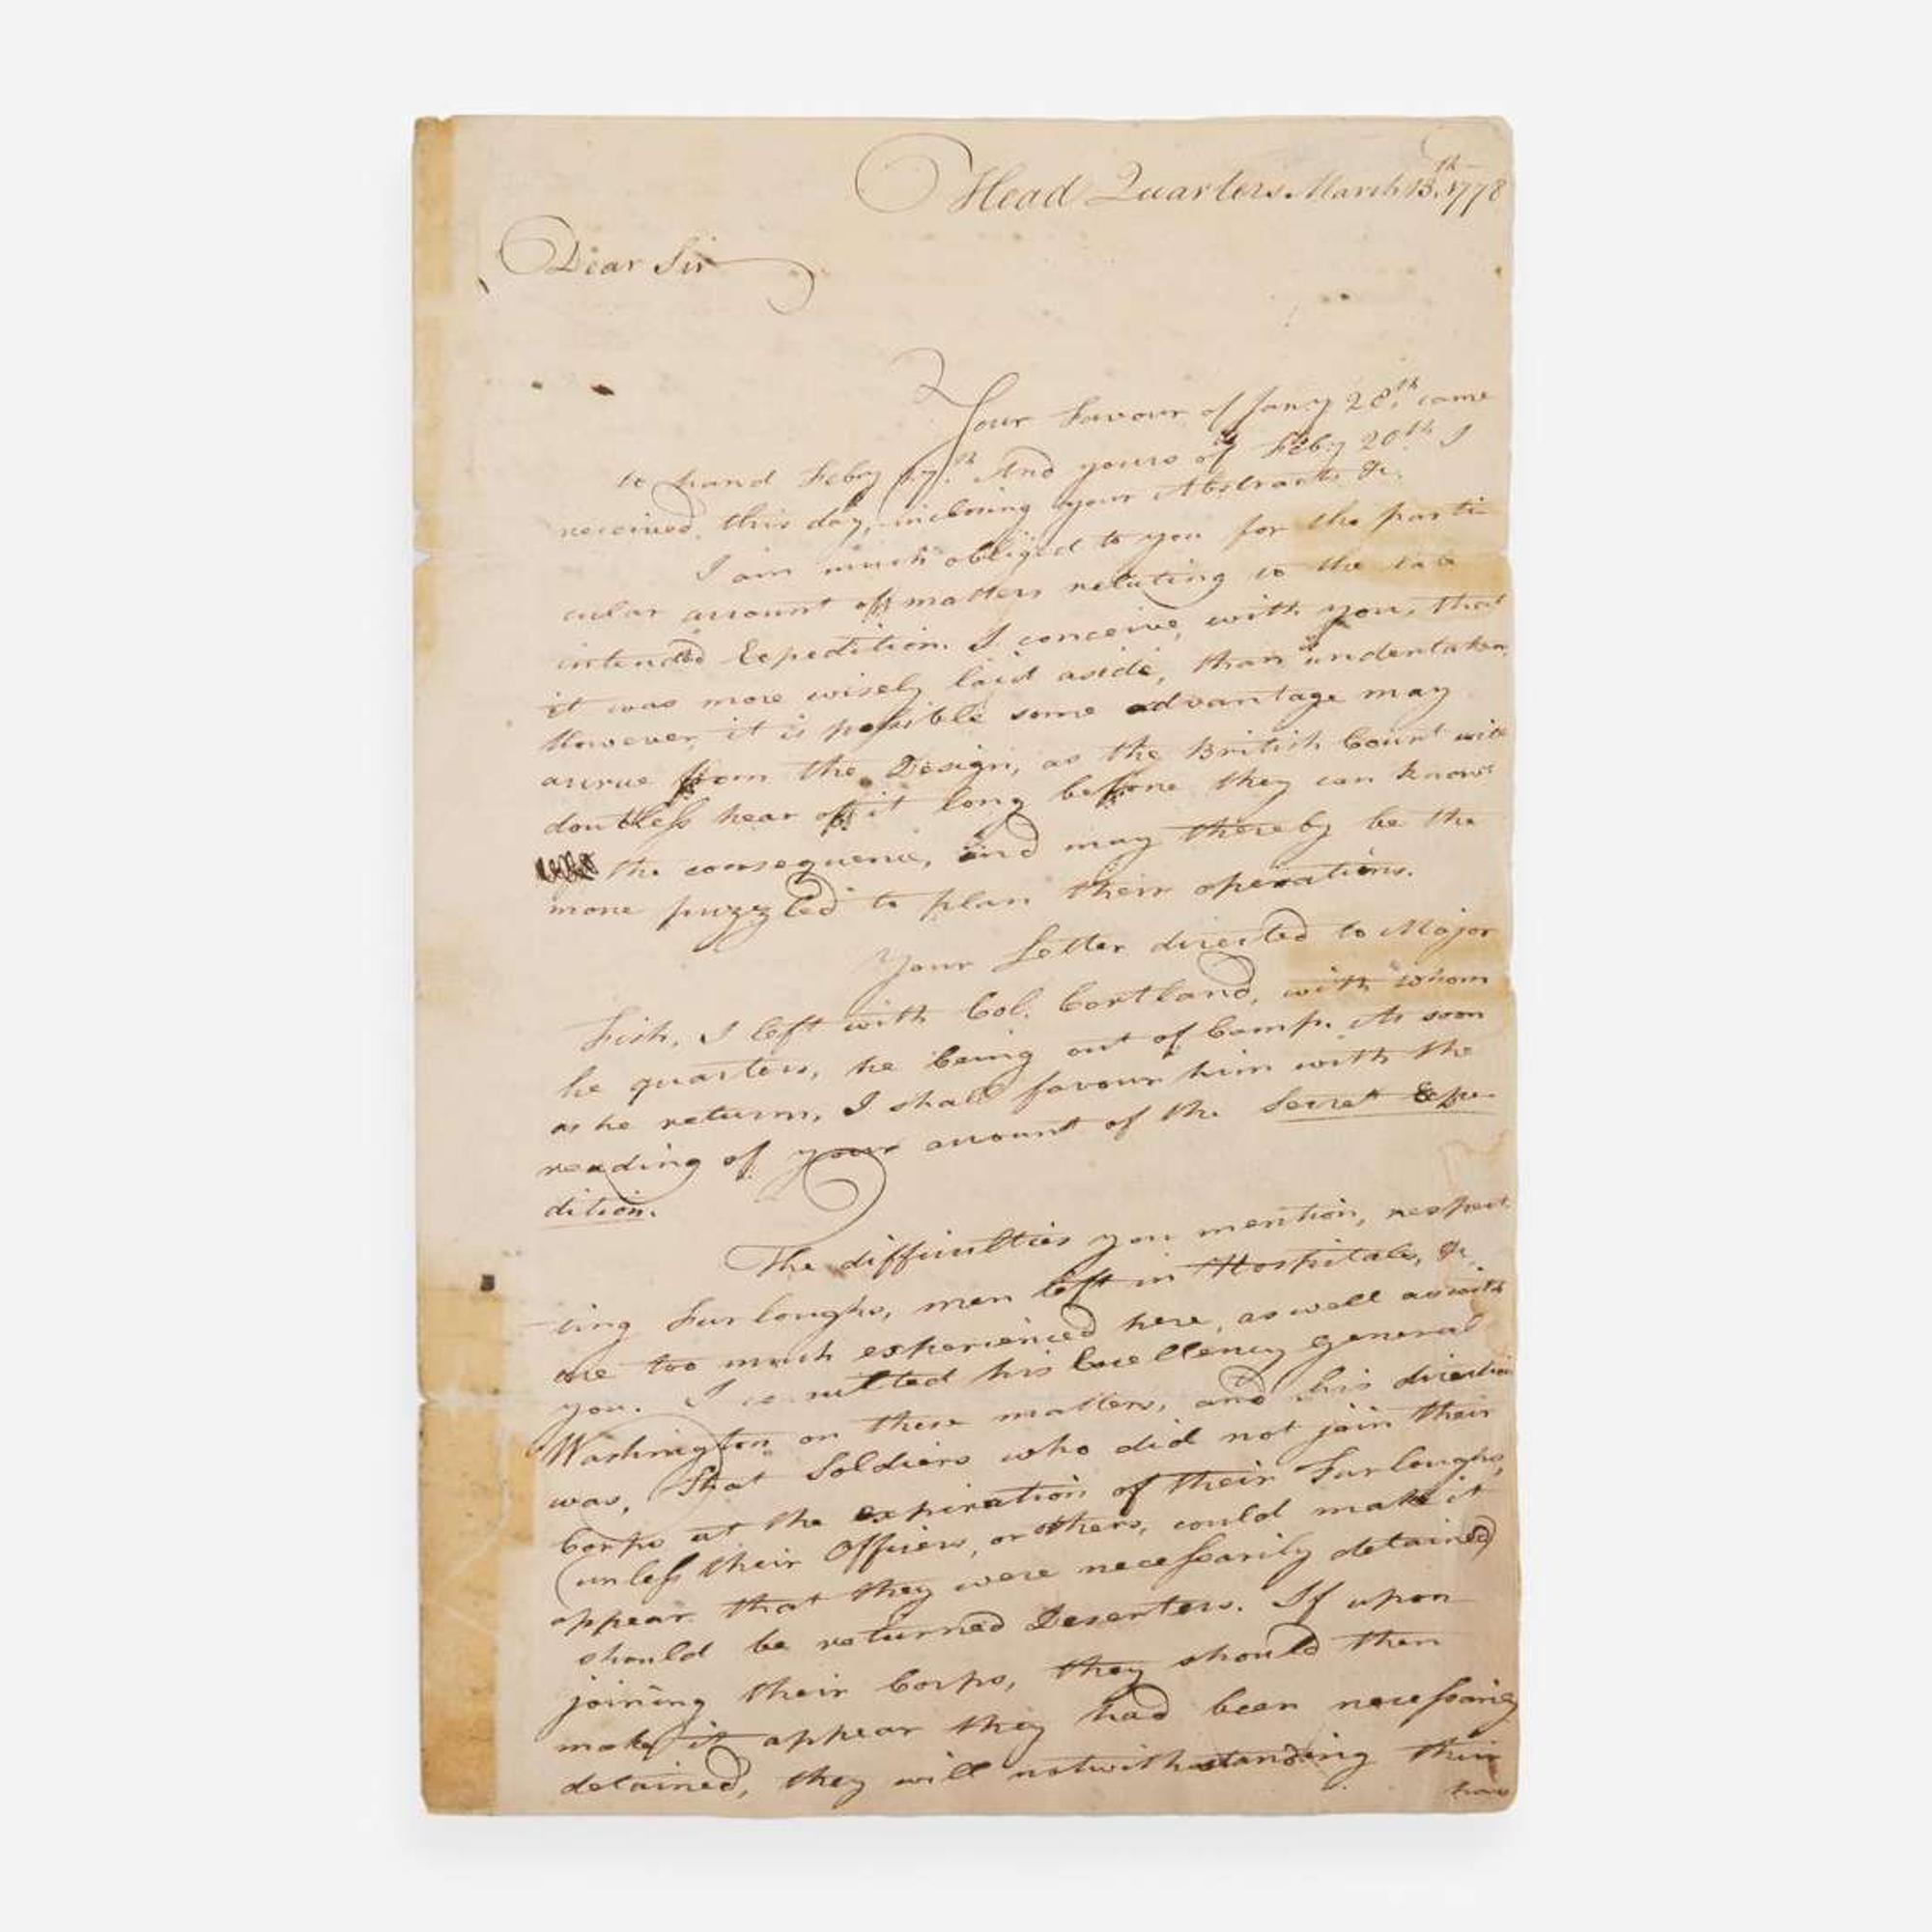 Head Quarters March 13.th 1778
Dear Sir
Your Favour of Jany 28.th came
to hand Febry 17.th And yours of Feby 20th I
received this day, inclosing your Abstracts &c.
I am much obliged to you for the parti
cular account of matters relating to the late
intended Expedition. I conceive, with you, that
it was more wisely laid aside, than undertaken.
However, it is possible some advantage may
accrue from the Design, as the British Court will
doubtless hear of it long before they can know
the consequence, and may thereby be the
more puzzled to plan their operations.
Your Letter directed to Major
Fish, I left with Col. Cortland, with whom
he quarters, he being out of Camp. As soon
as he returns, I shall favour him with the
reading of your account of the Secret Expe-
dition.
The difficulties you mention, respect
ing Furloughs, men left in Hospitals, &c.
are too much experienced here, as well as with
you. I consulted his Excellency General
Washington on these matters, and his direction
was, That Soldiers who did not join their
Corps at the expiration of their Furloughs,
(unless their Officers, or others, could make it
appear that they were necessarily detained)
should be returned Deserters. If upon
joining their Corps, they should then
make it appear they had been necessarily
detained, they will notwithstanding their